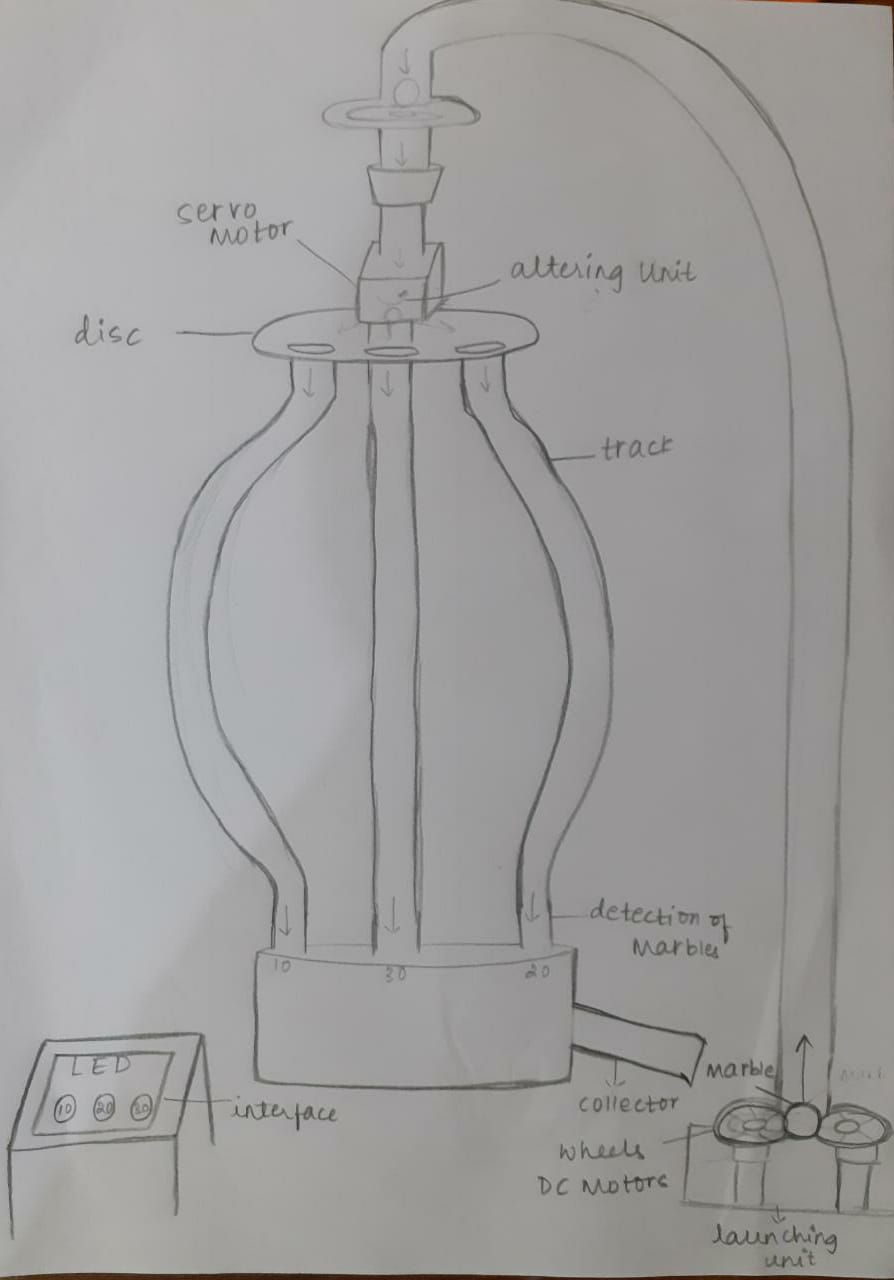 servo
Motor
altering Unit
disc
track
detection of
Marbles
10
30
20
LED
10
20
30
interface
collector
Marble
wheels
DC Motors
launching
unit